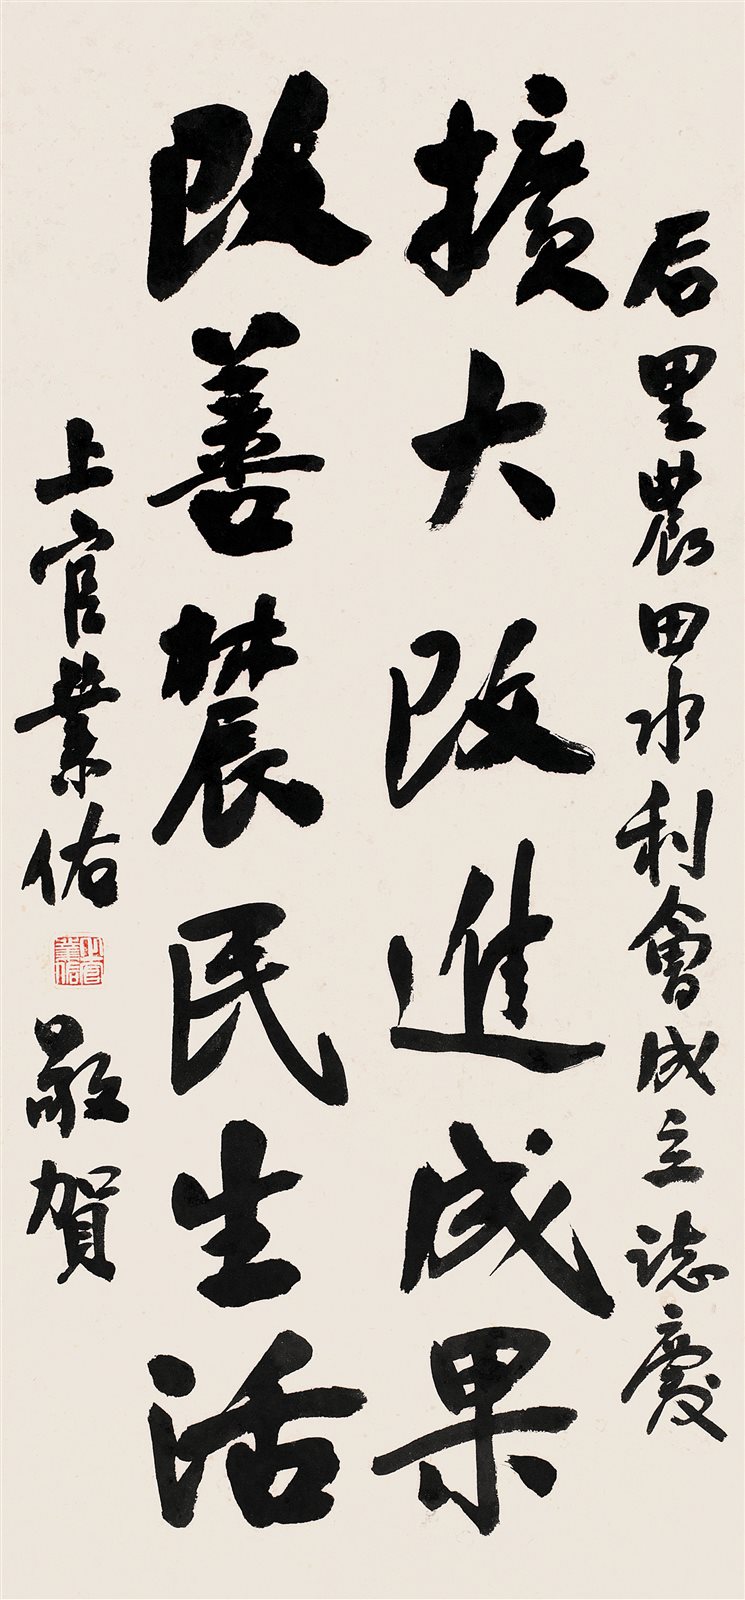 后里農田水利會成立誌慶
擴大改進成果
改善農民生活
上官業佑
敬賀
上官業佑